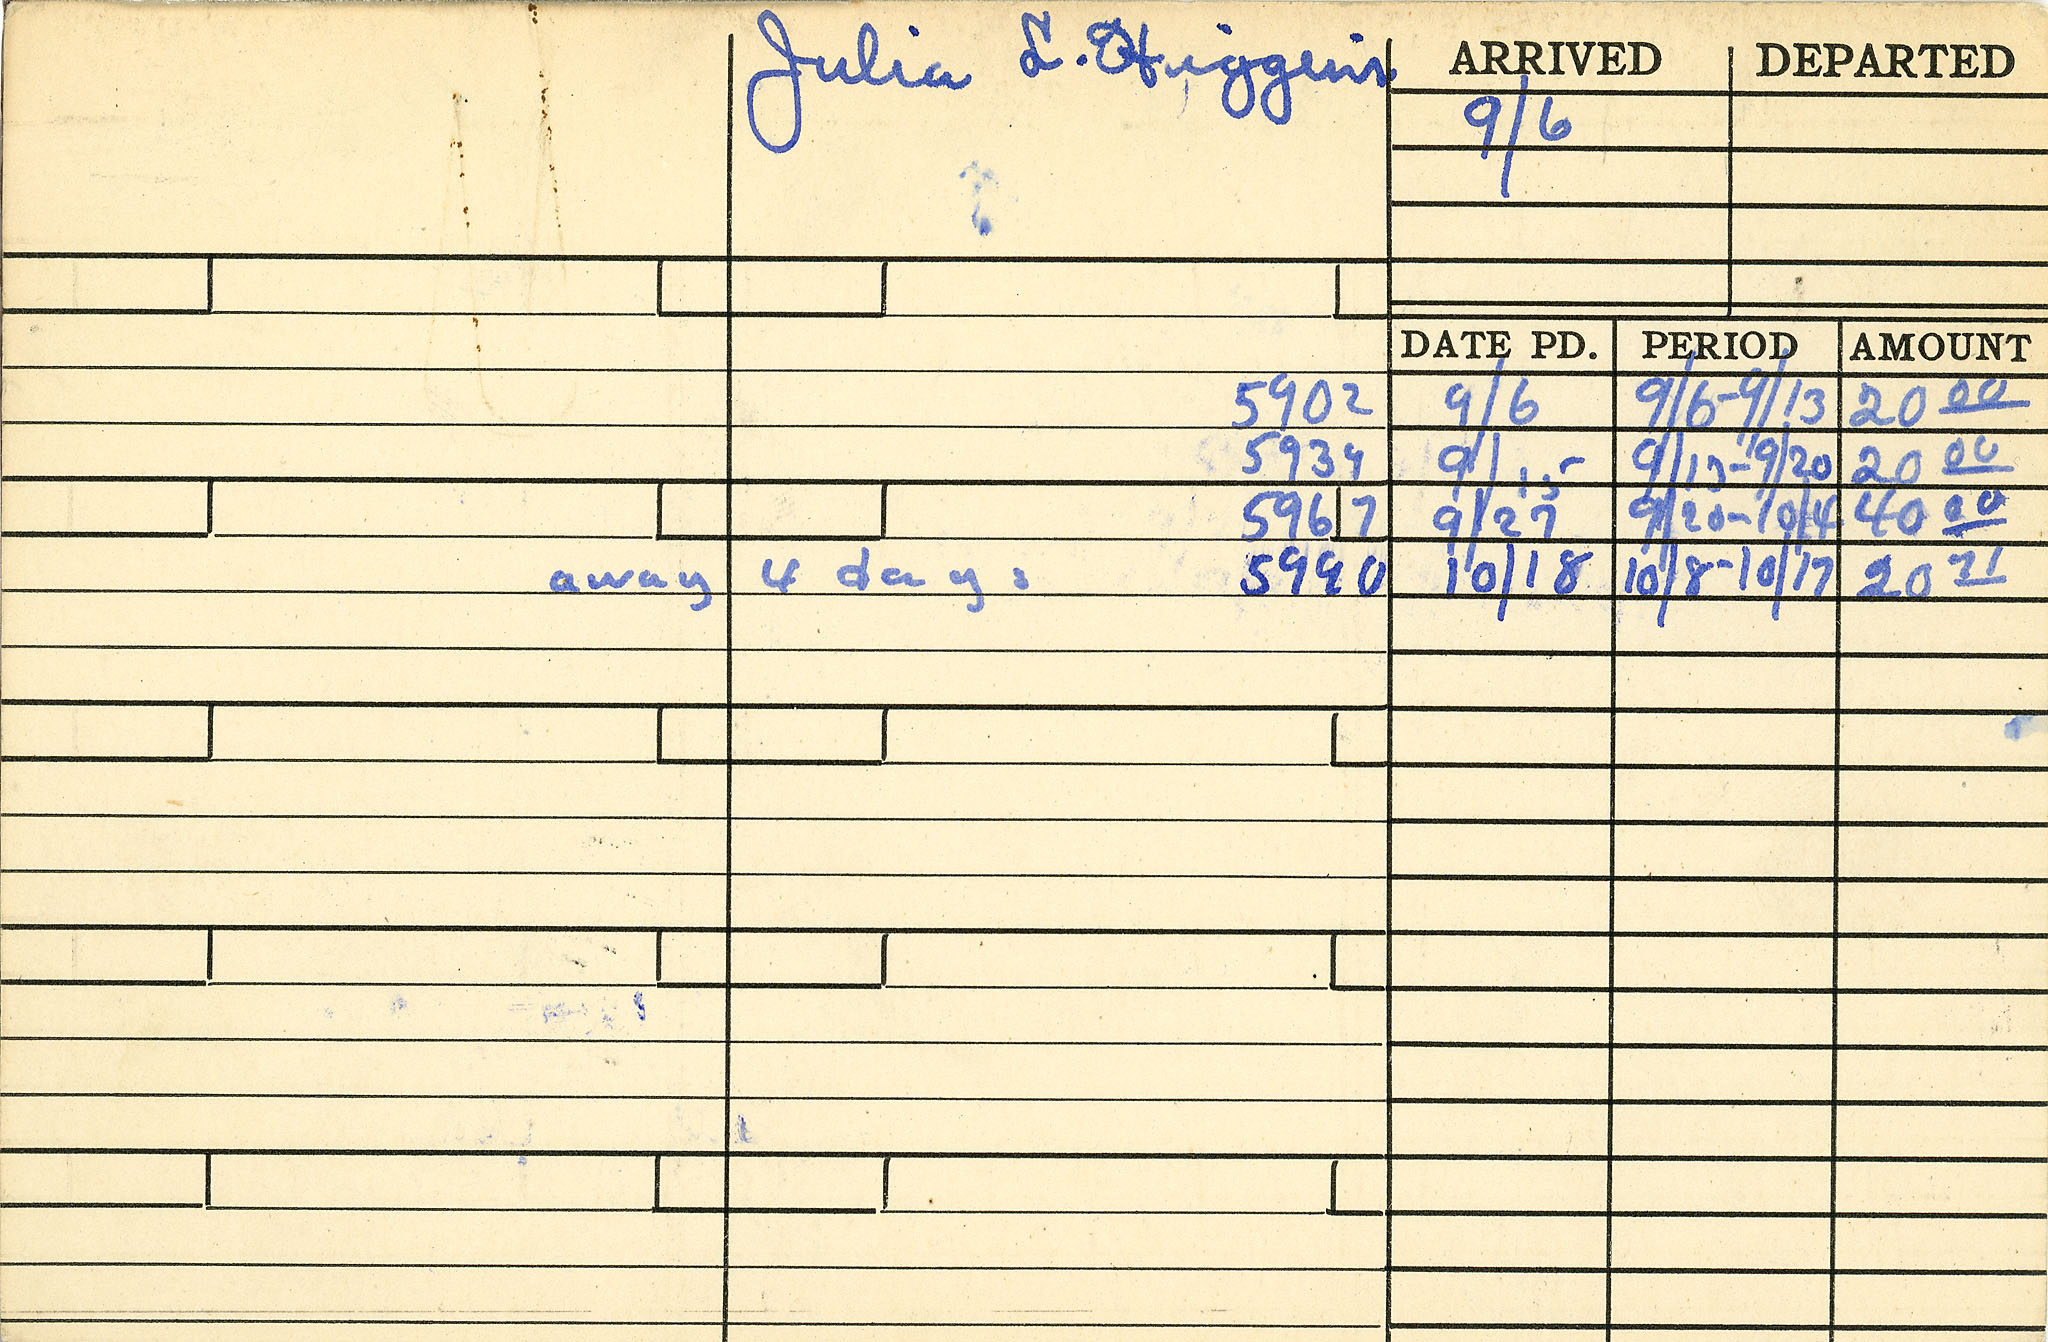 Julia L. Higgins
ARRIVED DEPARTED
9/6
DATE PD. PERIOD AMOUNT
5902 9/6 9/6-9/13 20 00
5934 9/15 9/13-9/20 20 00
5967 9/27 9/20-10/4 40 00
away 4 days 5990 10/18 10/8-10/17 20 71